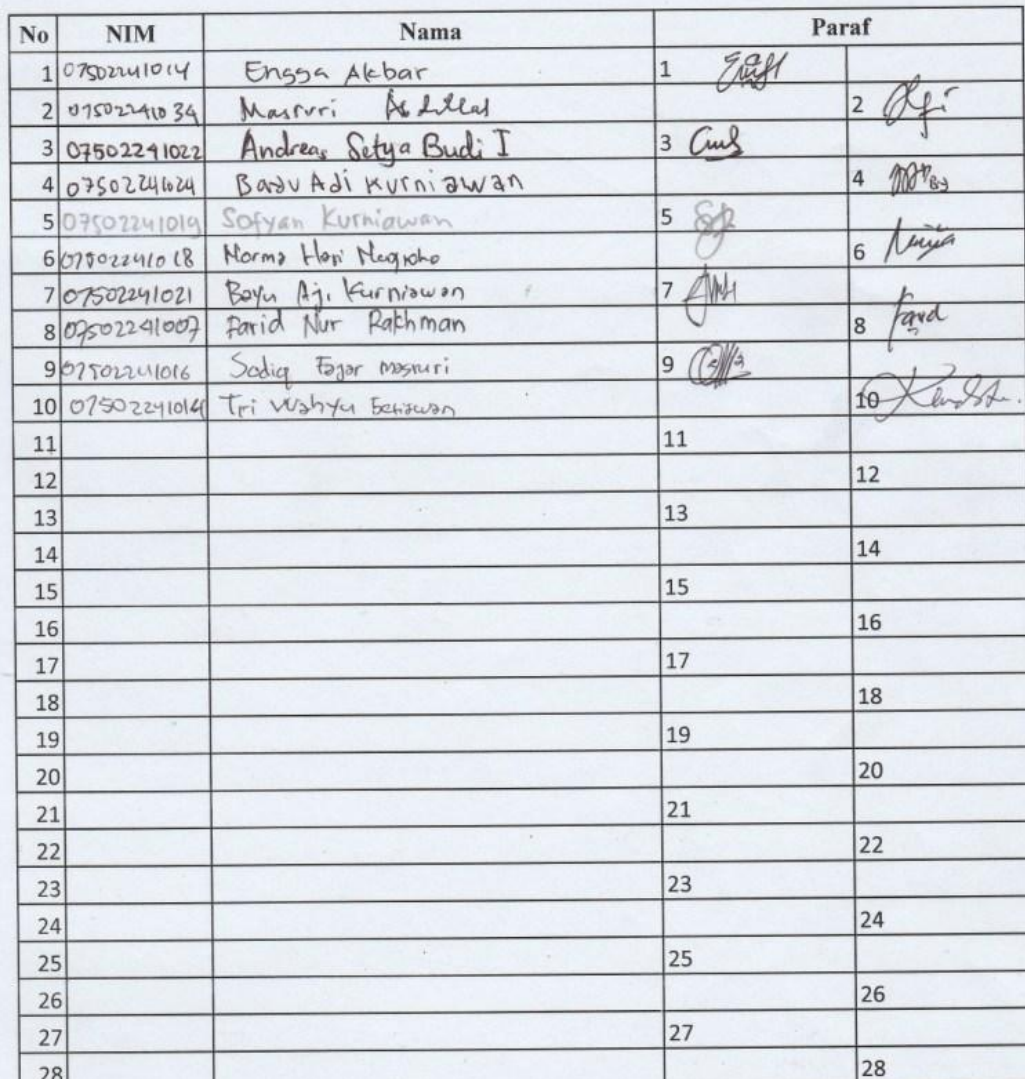 No NIM Nama Paraf
1 07502241014 Engga Akbar 1
2 07502241034 Masruri 2
3 07502241022 Andreas Setya Budi I 3
4 07502241024 Badu Adi Kurniawan 4
5 07502241019 Sofyan Kurniawan 5
6 07502241018 Norma Hari Nugroho 6
7 07502241021 Bayu Aji Kurniawan 7
8 07502241007 Farid Nur Rakhman 8 Farid
9 07502241016 Sodiq Fajar Masruri 9
10 Tri Wahyu Setiawan 10
11 11
12 12
13 13
14 14
15 15
16 16
17 17
18 18
19 19
20 20
21 21
22 22
23 23
24 24
25 25
26 26
27 27
28 28